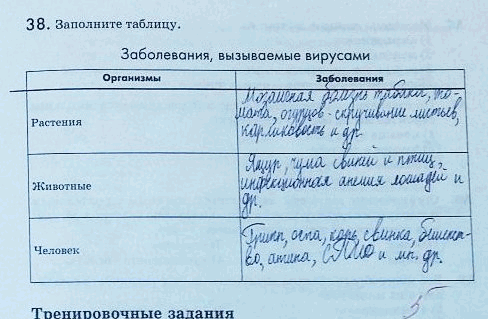 38. Заполните таблицу.
Заболевания, вызываемые вирусами
Организмы
Заболевания
Растения
Мозаичная болезнь табака, то-
мата, огурцов - скручивание листьев,
карликовость и др.
Животные
Ящур, чума свиней и птиц,
инфекционная анемия лошадей и
др.
Человек
Грипп, оспа, корь, свинка, бешенст-
во, атипа, СПИД и мн. др.
5
Тренировочные задания